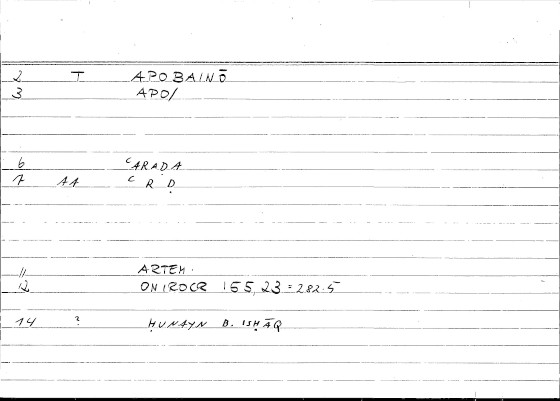 2 T APOBAINŌ
3 APO/
6 ʿARAḌA
7 AA ʿ R Ḍ
11 ARTEM.
12 ONIROCR 155,23 = 282.5
14 ? ḤUNAYN B. ISḤĀQ